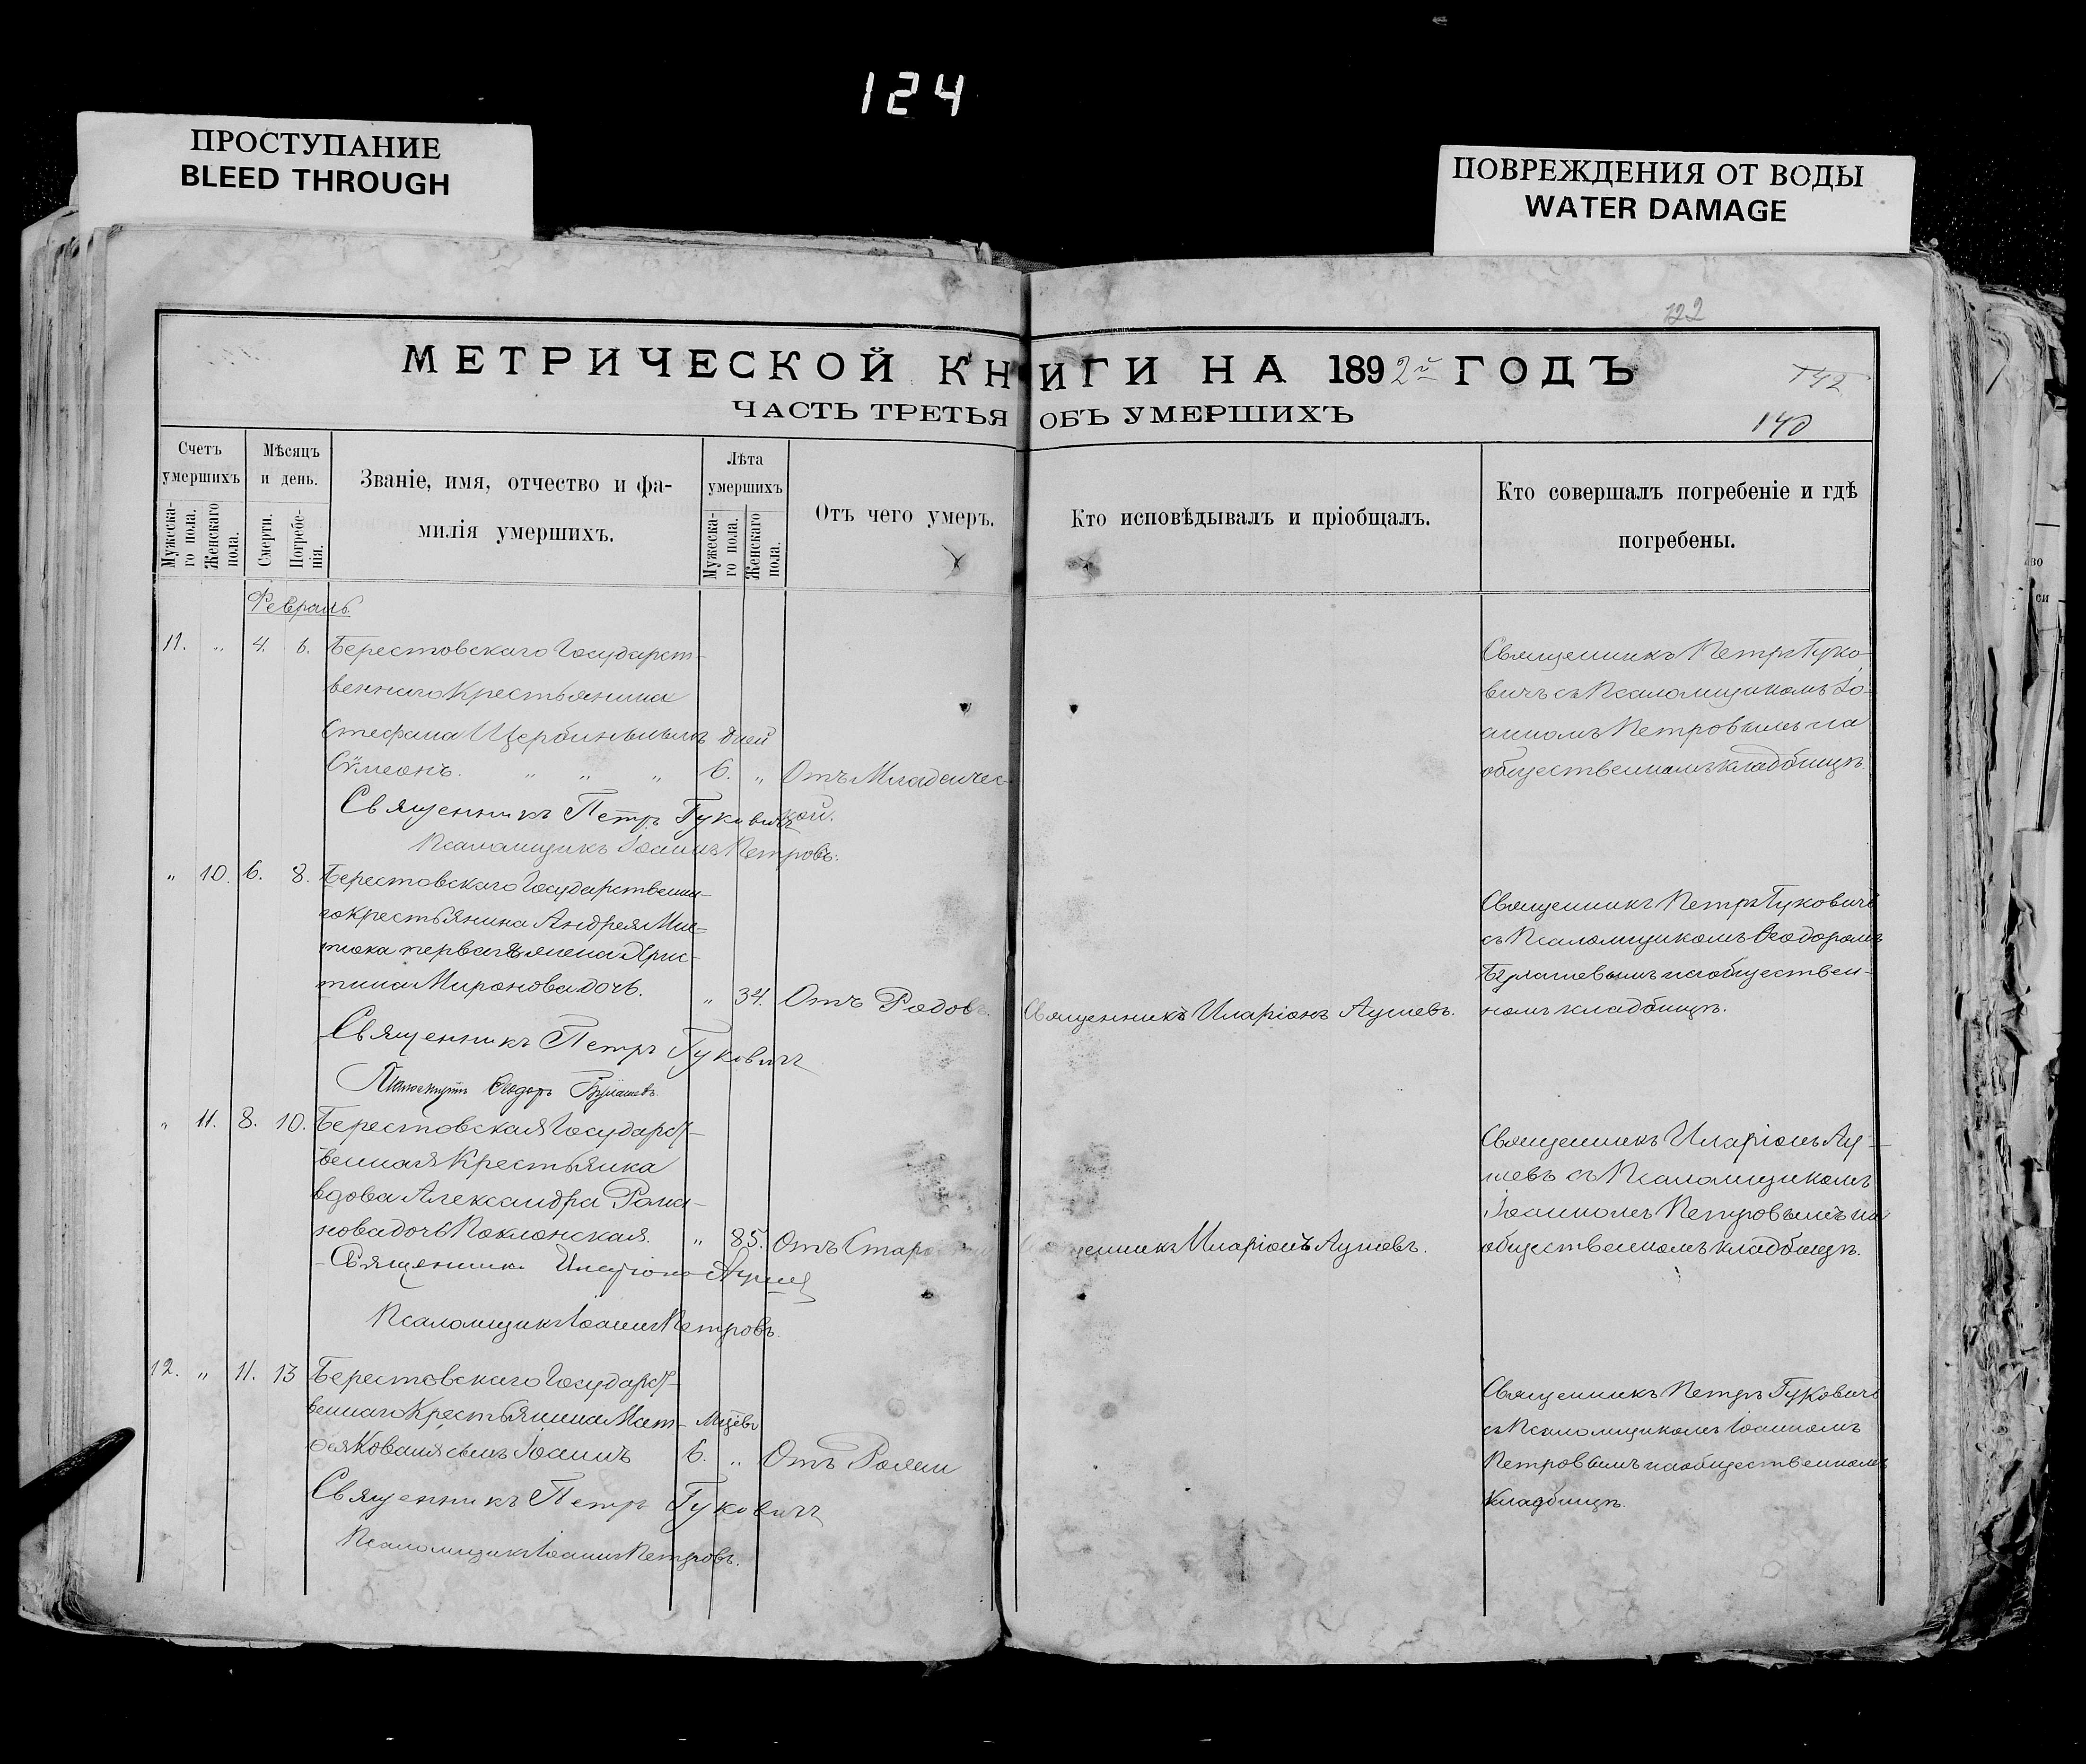 124
ПРОСТУПАНИЕ
BLEED THROUGH
ПОВРЕЖДЕНИЯ ОТ ВОДЫ
WATER DAMAGE
122
МЕТРИЧЕСКОЙ КНИГИ НА 1892й ГОДЪ
142
ЧАСТЬ ТРЕТЬЯ ОБЪ УМЕРШИХЪ
140
Счетъ умершихъ
Мужеска-го пола.
Женскаго пола.
Мѣсяцъ и день.
Смерти.
Погребе-нія.
Званіе, имя, отчество и фа-
милія умершихъ.
Лѣта умершихъ
Мужеска-го пола.
Женскаго пола.
Отъ чего умеръ.
Кто исповѣдывалъ и пріобщалъ.
Кто совершалъ погребеніе и гдѣ
погребены.
Февраль
11. " 4. 6. Берестовскаго Государст-
веннаго Крестьянина
Стефана дней
Сѵмеонъ. " " " 6. " Отъ Младенчес-
кой.
Священникъ Петръ Гуковичъ
Псаломщикъ Іоаннъ Петровъ.
Священникъ Петръ Гуко-
вичъ съ Псаломщикомъ Іо-
анномъ Петровымъ на
общественномъ кладбищѣ.
" 10. 6. 8. Берестовскаго Государственна-
го Крестьянина Андрея
первая жена Хрис-
тина Миронова дочь. " 34. Отъ Родовъ. Священникъ Иларіонъ Аушевъ.
Священникъ Петръ Гуковичъ
Псаломщикъ Ѳеодоръ Булашевъ.
Священникъ Петръ Гуковичъ
съ Псаломщикомъ Ѳеодоромъ
Булашевымъ на обществен-
номъ кладбищѣ.
" 11. 8. 10. Берестовская Государст-
венная Крестьянка
вдова Александра Рома-
нова дочь Поклонская. " 85. Отъ Старо Иларіонъ Аушевъ.
Священникъ Иларіонъ Аушевъ
Псаломщикъ Іоаннъ Петровъ.
Священникъ Иларіонъ Ау-
шевъ съ Псаломщикомъ
Іоанномъ Петровымъ на
общественномъ кладбищѣ.
12. " 11. 13 Берестовскаго Государст-
веннаго Крестьянина Мат-
сынъ Іоаннъ 6. " Отъ Рожи
Священникъ Петръ Гуковичъ
Псаломщикъ Іоаннъ Петровъ.
Священникъ Петръ Гуковичъ
съ Псаломщикомъ Іоанномъ
Петровымъ на общественномъ
кладбищѣ.